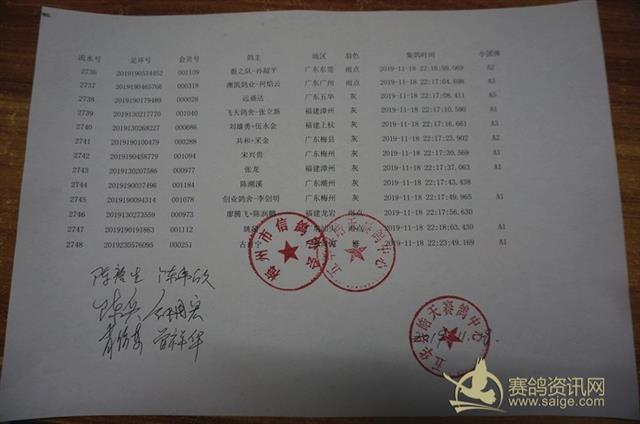 流水号 足环号 会员号 鸽主 地区 羽色 集鸽时间 小团体
2736 2019190534452 001109 翡之队-孙超平 广东东莞 雨点 2019-11-18 22:16:59.069 A2
2737 2019190465766 000318 澳凯鸽业-何焰云 广东广州 雨点 2019-11-18 22:17:04.698 A3
2738 2019190179489 000028 远盛达 广东五华 灰 2019-11-18 22:17:08.411 A5
2739 2019130217770 001040 飞天鸽舍-张立新 福建漳州 灰 2019-11-18 22:17:10.596 A1
2740 2019130268227 000686 刘雄勇+伍永金 福建上杭 灰 2019-11-18 22:17:16.661 A3
2741 2019190100479 000288 共和+采金 广东梅县 灰 2019-11-18 22:17:23.902 A2
2742 2019190458779 001094 宋兴贵 广东梅州 灰 2019-11-18 22:17:30.569 A1
2743 2019130207586 000977 张龙 福建漳州 灰 2019-11-18 22:17:37.063 A1
2744 2019190037496 001184 陈潮溪 广东潮州 灰 2019-11-18 22:17:43.438
2745 2019190094314 001078 创业鸽舍-李创明 广东梅州 灰 2019-11-18 22:17:49.965 A1
2746 2019130273559 000973 廖腾飞+陈润麟 福建龙岩 雨点 2019-11-18 22:17:56.630
2747 2019190191863 001112 姚 汕头 雨点 2019-11-18 22:18:03.430 A1
2748 2019230576095 000251 古 宁 2019-11-18 22:23:49.169 A1
梅州市信鸽协会
五华皓天赛鸽中心
五华皓天赛鸽中心
赛鸽资讯网
www.saige.com